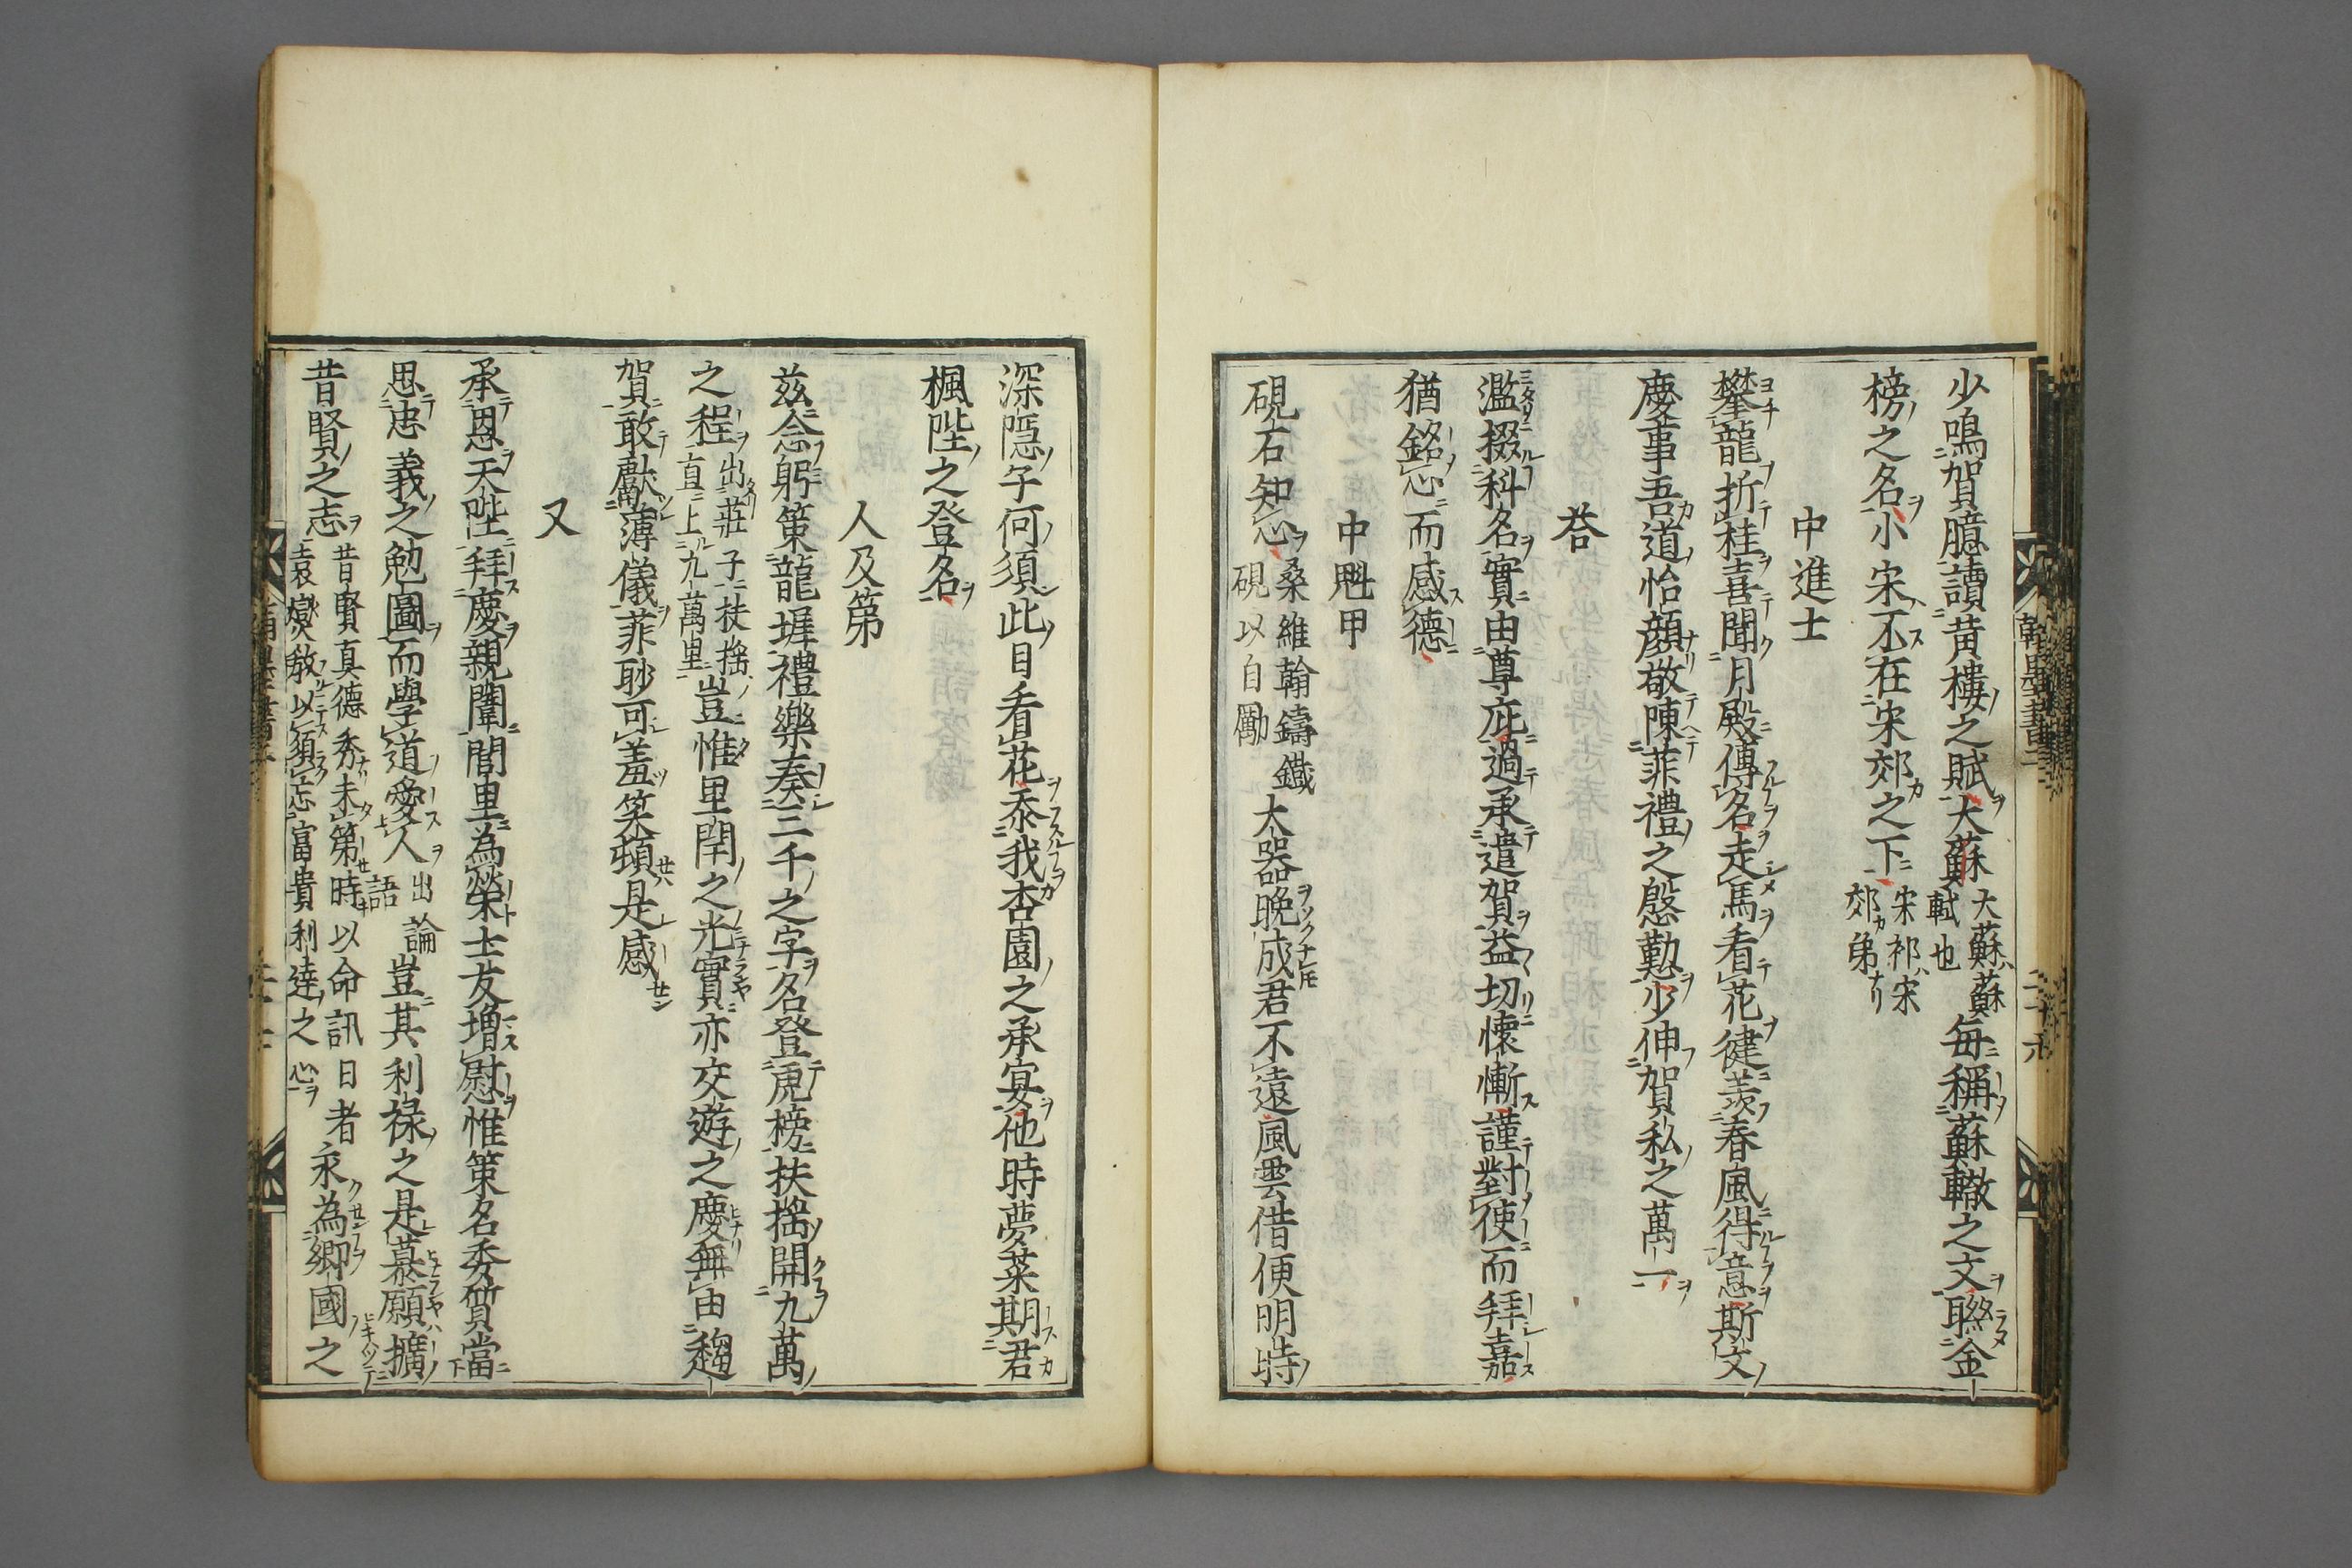 少鳴賀臆讀黃樓之賦大蘇大蘇ハ蘇軾也每稱蘇轍之文聯金
榜之名小宋不在宋郊之下宋祁ハ宋郊カ弟ナリ
中進士
攀龍折桂喜聞月殿傳名走馬看花健羨春風得意斯文
慶事吾道怡顏敬陳菲禮之慇懃少伸賀私之萬一
荅
濫掇科名實由尊庇過承遣賀益切懷慚謹對使而拜嘉
猶銘心而感德
中魁甲
硯石知心桑維翰鑄鐵硯以自勵大器晩成君不遠風雲借便明時
深隱子何須此目看花忝我杏園之承宴他時夢葉期君
楓陛之登名
人及第
茲念躬策龍墀禮樂奏三千之字名登虎榜扶搖開九萬
之程出莊子扶搖直上九萬里豈惟里閈之光實亦交遊之慶無由趨
賀敢獻薄儀菲耿可羞笑頓是感
又
承恩天陛拜慶親闈閭里為榮士友增慰惟策名委質當
思忠義之勉圖而學道愛人出論語豈其利祿之是慕願擴
昔賢之志昔賢真德秀未第時以命訊日者袁燮教以須忘富貴利達之心永為鄉國之